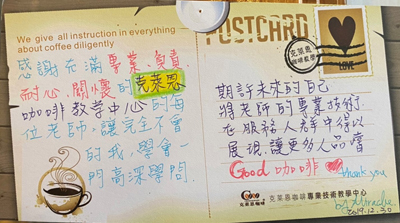 We give all instruction in everything
about coffee diligently
POSTCARD
感謝充滿專業、負責
耐心、關懷的克萊恩
咖啡教學中心的每
位老師，讓完全不會
的我，學會一
門高深學問.
克萊恩
咖啡教學
LOVE
期許未來的自己
將老師的專業技術
在服務人群中得以
展現，讓更多人品嚐
Good 咖啡
thank you
2019.12.30
克萊恩咖啡專業技術教學中心